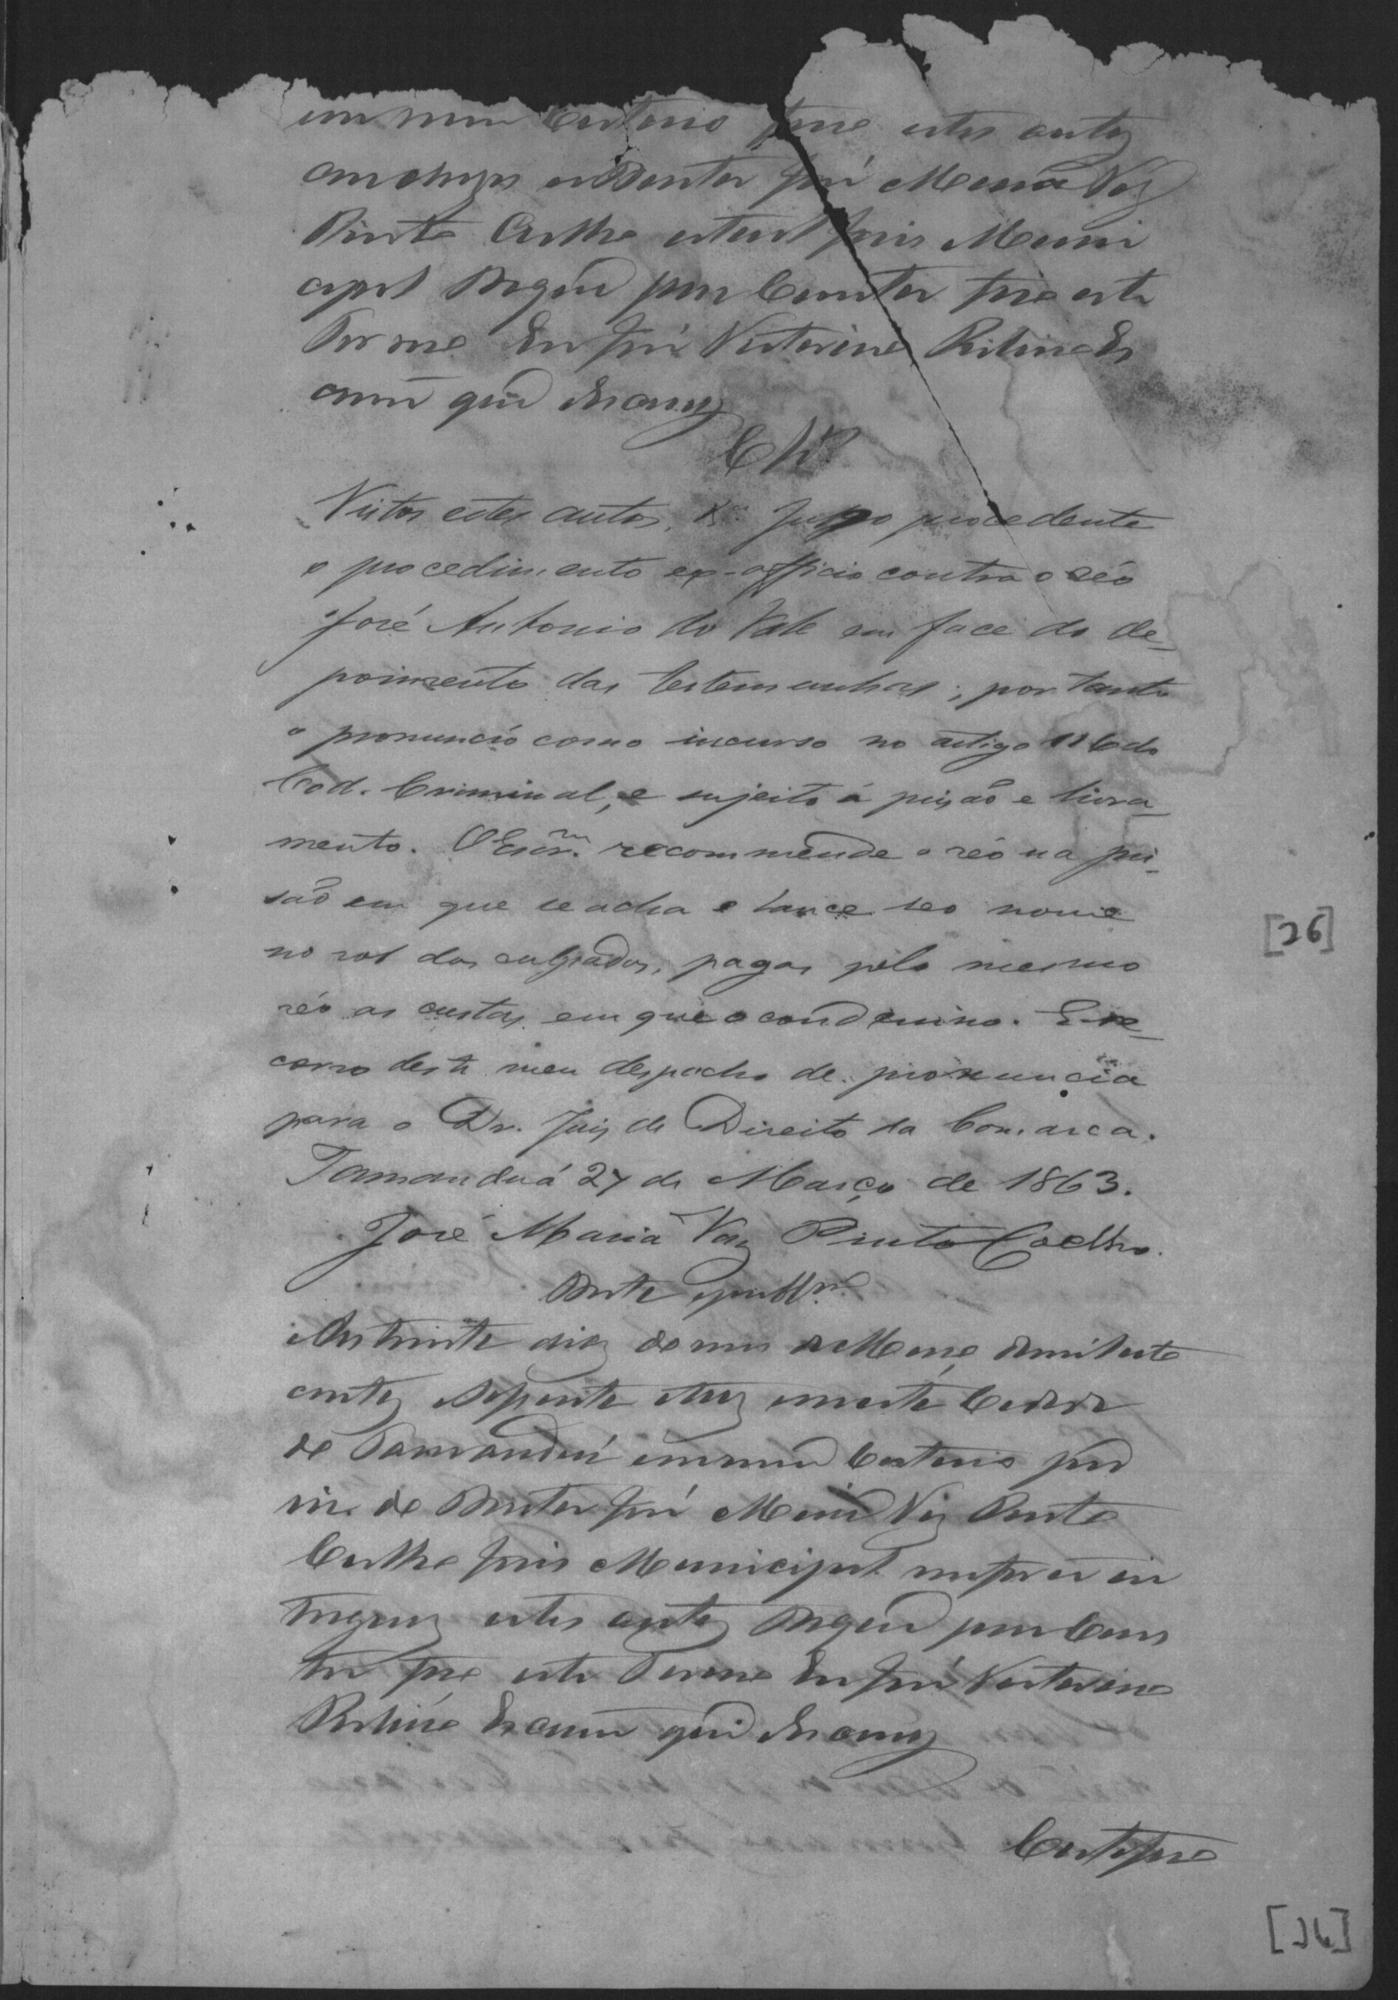 em meu Cartorio faço estes autos
conclusos ao Doutor José Maria Vaz
Pinto Coelho actual Juis Muni
cipal do que para Constar faço este
Termo Eu José Victorino
que o Escrevy
Clsº
Vistos estes autos, &ª. Julgo procedente
o procedimento ex-officio contra o réo
José Antonio do Vale em face do de-
poimento das testemunhas; por tanto
o pronuncio como incurso no artigo do
Cod. Criminal, e sujeito á prisão e livra-
mento. O Escrm. recommende o réo na pri-
são em que se acha e lance seo nome
no rol dos culpados, pagas pelo mesmo
réo as custas em que o condemno. E re-
corro deste meu despacho de pronuncia
para o Dr. Juiz de Direito da Comarca.
Tamanduá 27 de Março de 1863.
José Maria Vaz Pinto Coelho.
Data e publm.
Aos trinta dias do mes de Março de mil oito
centos e secenta e tres em esta Cidade
de Tamanduá em meu Cartorio por
de Doutor José Maria Vaz Pinto
Coelho Juis Municipal me forão en
tregues estes autos do que para Cons
tar faço este Termo Eu José Victorino
que o Escrevy
Certifico
[26]
[26]